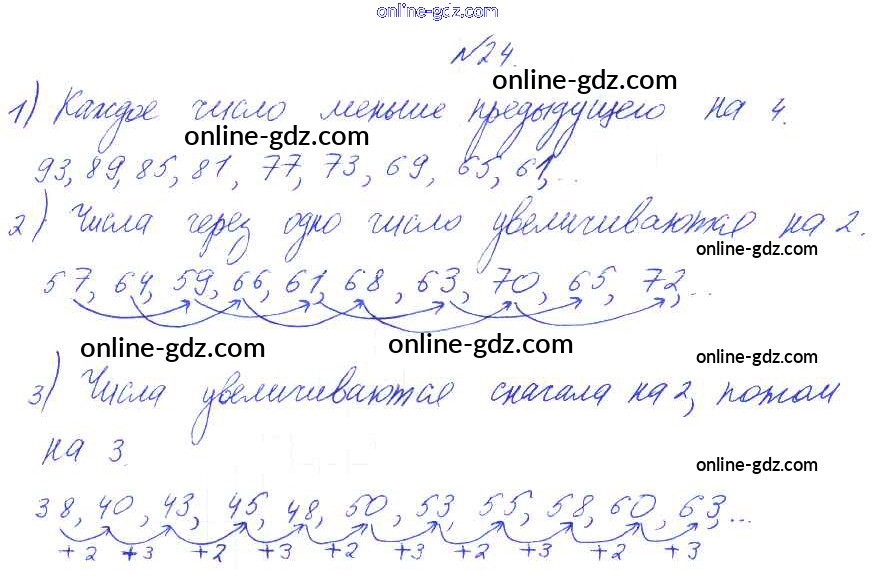 online-gdz.com
№24.
online-gdz.com
1) Каждое число меньше предыдущего на 4.
online-gdz.com
93, 89, 85, 81, 77, 73, 69, 65, 61,...
2) Числа через одно число увеличиваются на 2.
online-gdz.com
57, 64, 59, 66, 61, 68, 63, 70, 65, 72,...
online-gdz.com
online-gdz.com
online-gdz.com
3) Числа увеличиваются сначала на 2, потом
на 3.
online-gdz.com
38, 40, 43, 45, 48, 50, 53, 55, 58, 60, 63,...
+2 +3 +2 +3 +2 +3 +2 +3 +2 +3